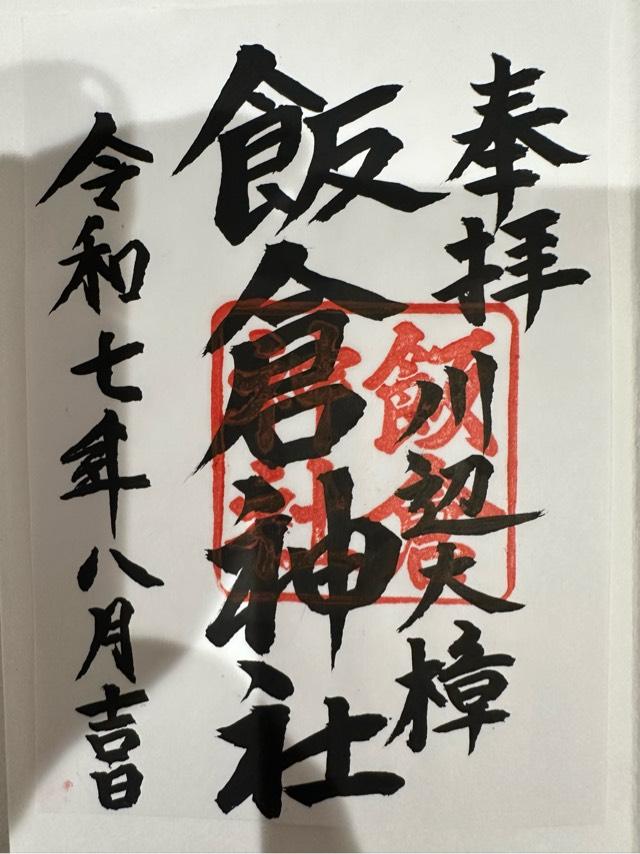 奉拝
川辺大樟
飯倉神社
飯倉
神社
令和七年八月吉日